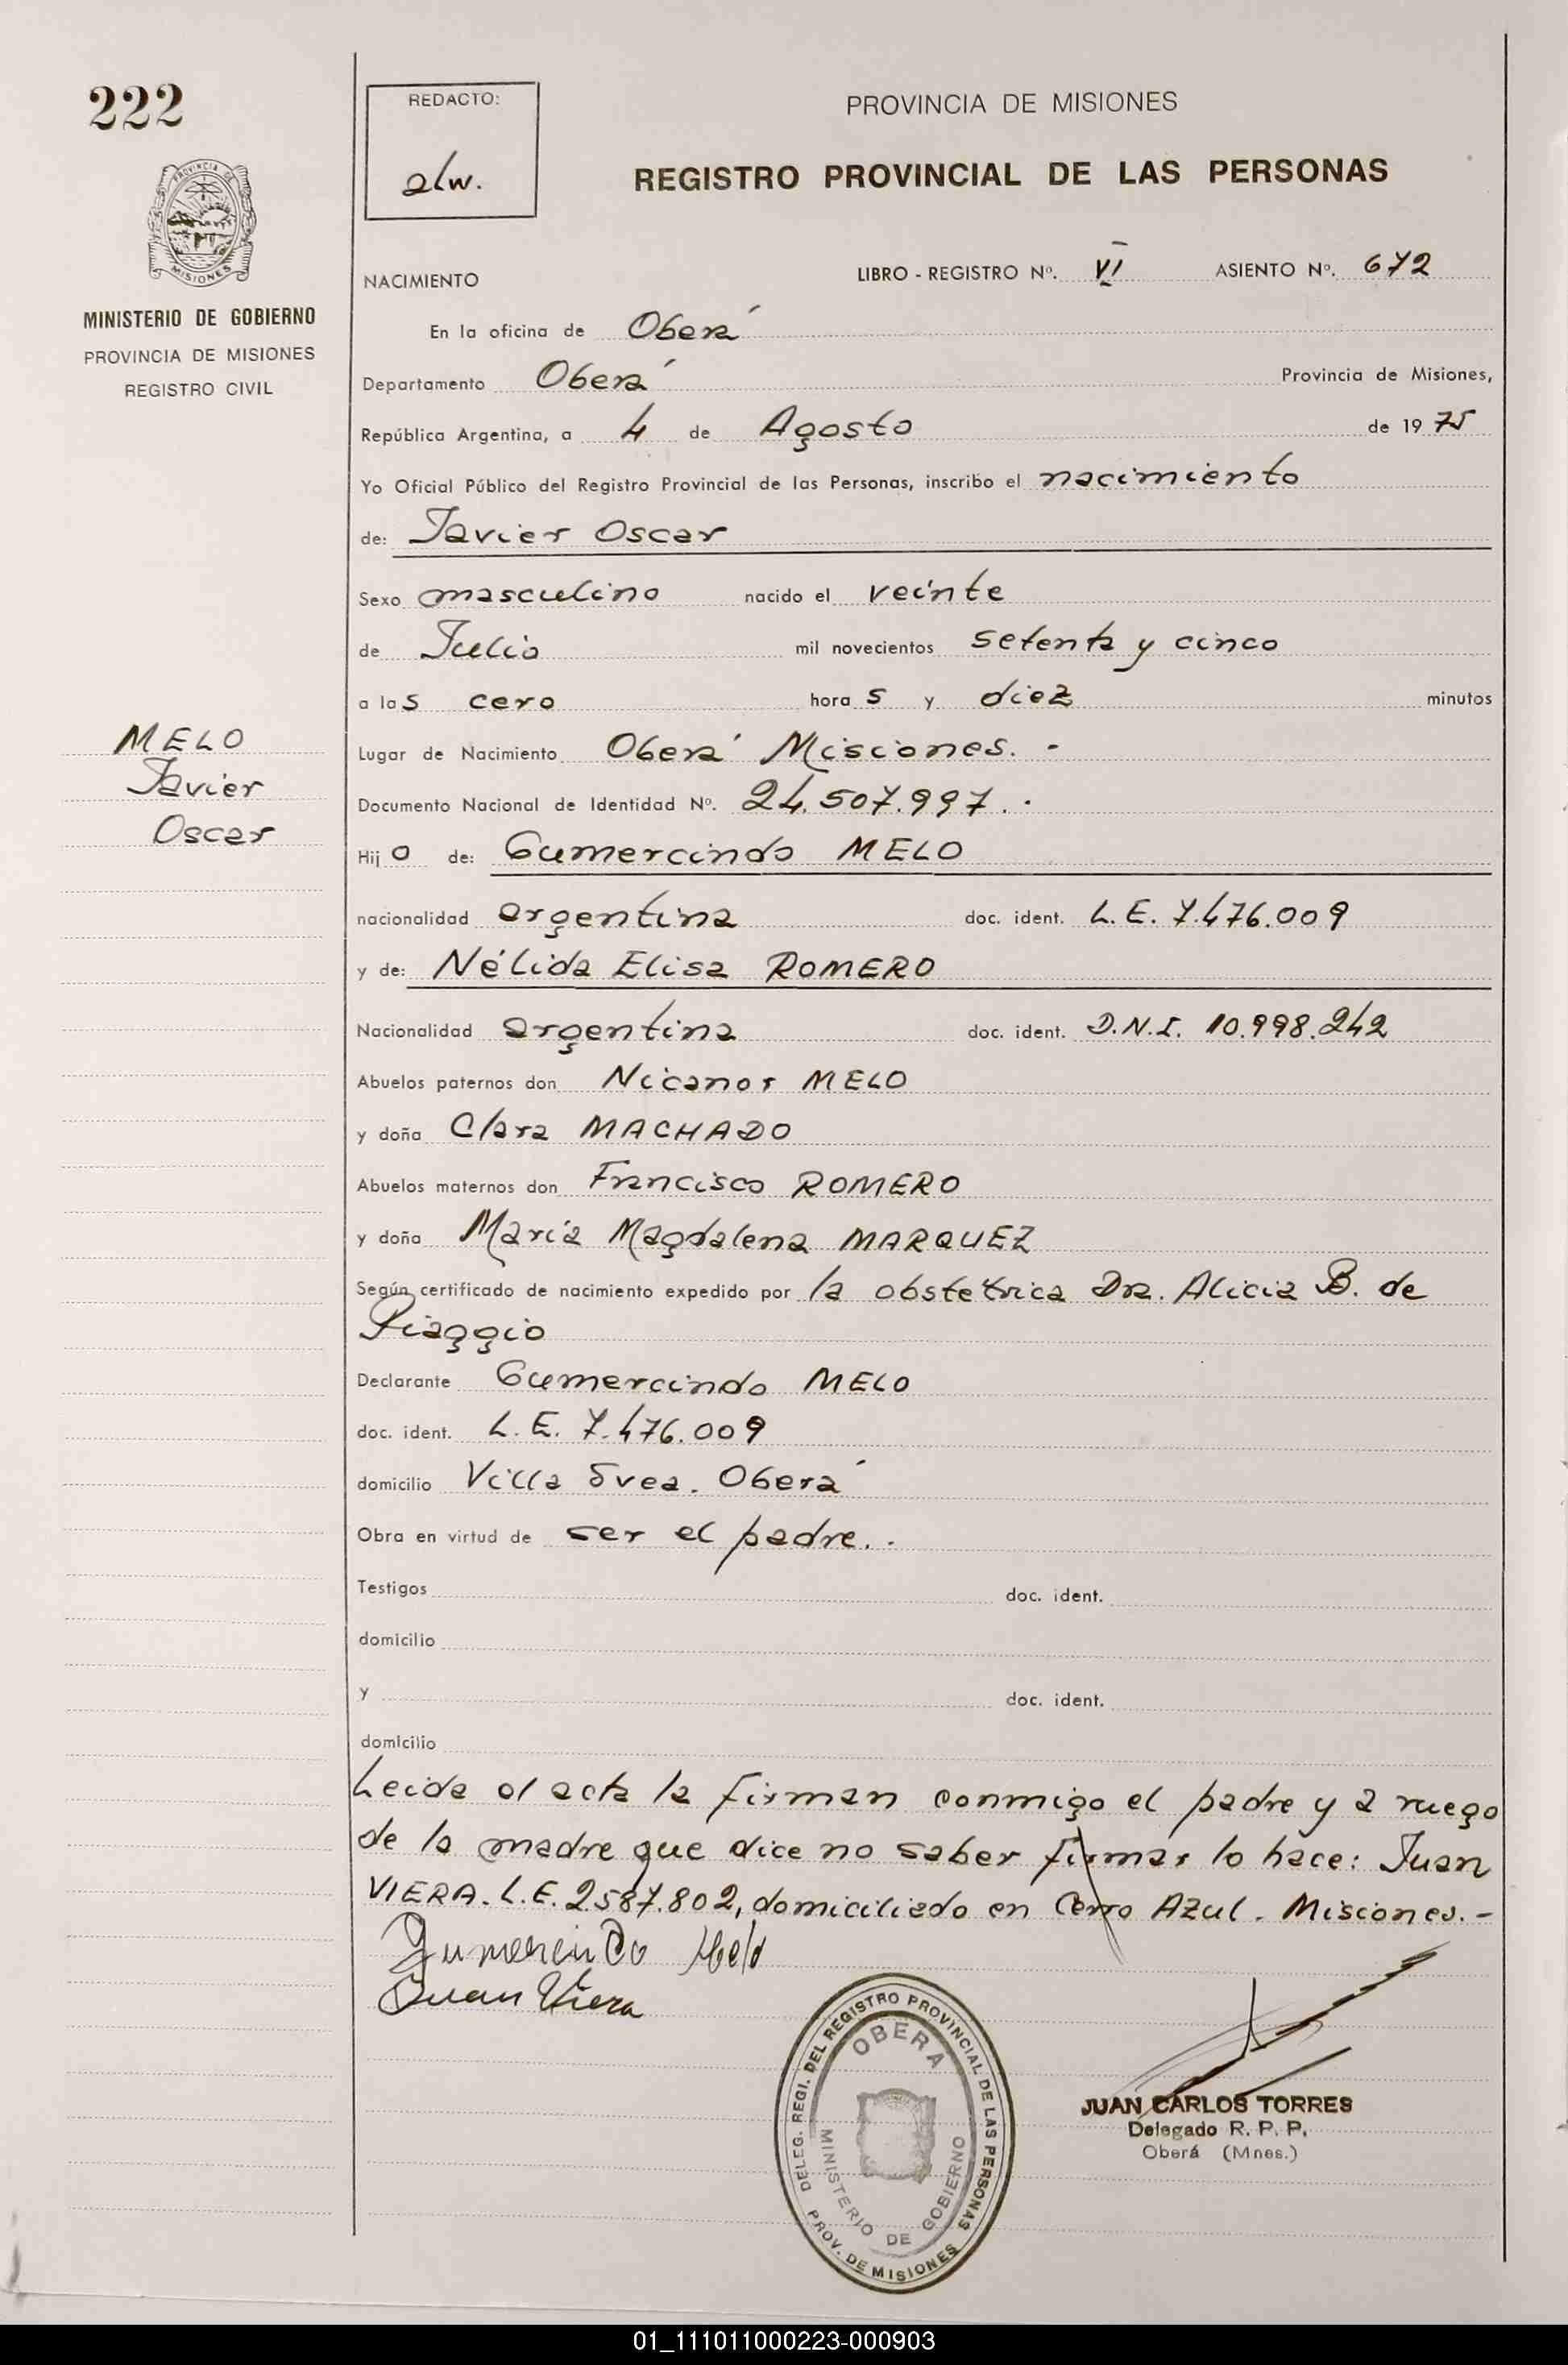 222
REDACTO:
alw.
PROVINCIA DE MISIONES
REGISTRO PROVINCIAL DE LAS PERSONAS
PROVINCIA DE
MISIONES
MINISTERIO DE GOBIERNO
PROVINCIA DE MISIONES
REGISTRO CIVIL
NACIMIENTO LIBRO - REGISTRO Nº. VI ASIENTO Nº. 672
En la oficina de Oberá
Departamento Oberá Provincia de Misiones,
República Argentina, a 4 de Agosto de 1975
Yo Oficial Público del Registro Provincial de las Personas, inscribo el nacimiento
de: Javier Oscar
Sexo masculino nacido el veinte
de Julio mil novecientos setenta y cinco
a las cero horas y diez minutos
MELO
Javier
Oscar
Lugar de Nacimiento Oberá Misiones. -
Documento Nacional de Identidad Nº. 24.507.997. -
Hijo de: Gumercindo MELO
nacionalidad argentina doc. ident. L.E. 7.476.009
y de: Nélida Elisa ROMERO
Nacionalidad argentina doc. ident. D.N.I. 10.998.242
Abuelos paternos don Nicanor MELO
y doña Clara MACHADO
Abuelos maternos don Francisco ROMERO
y doña María Magdalena MARQUEZ
Según certificado de nacimiento expedido por la obstetrica Dra. Alicia B. de
Piaggio
Declarante Gumercindo MELO
doc. ident. L.E. 7.476.009
domicilio Villa Svea. Oberá
Obra en virtud de ser el padre. .
Testigos doc. ident.
domicilio
y doc. ident.
domicilio
Leida el acta la firman conmigo el padre y a ruego
de la madre que dice no saber firmar lo hace: Juan
VIERA. L.E. 2.587.802, domiciliado en Cerro Azul. Misiones. -
Gumercindo Melo
Juan Viera
DELEG. REGI. DEL REGISTRO PROVINCIAL DE LAS PERSONAS
OBERA
MINISTERIO DE GOBIERNO
PROV. DE MISIONES
JUAN CARLOS TORRES
Delegado R. P. P.
Oberá (Mnes.)
01_111011000223-000903